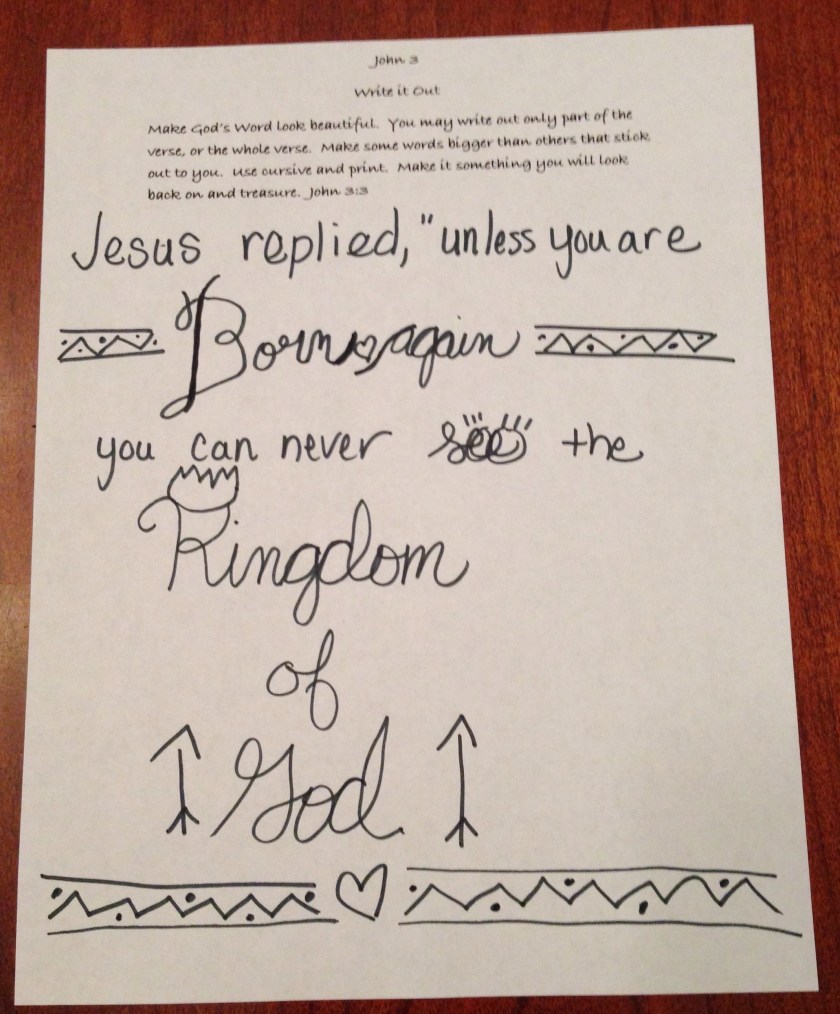 John 3
Write it Out
Make God's Word look beautiful. You may write out only part of the
verse, or the whole verse. Make some words bigger than others that stick
out to you. Use cursive and print. Make it something you will look
back on and treasure. John 3:3
Jesus replied, "unless you are
Born again
you can never see the
Kingdom
of
God